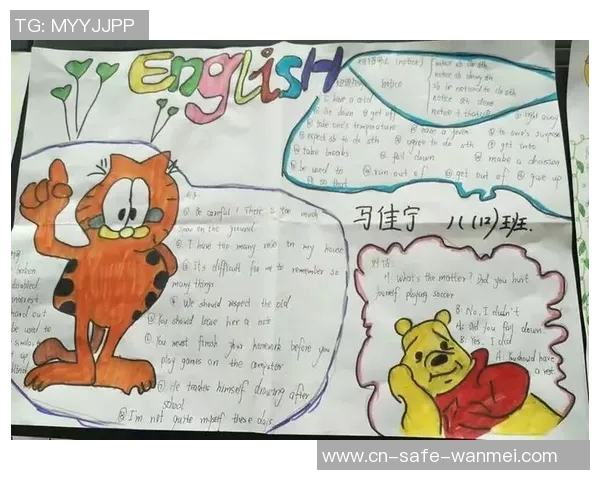 TG: MYYJJPP
English
短语
(notice)
notice sb do sth
notice sb doing sth
sb be noticed to do sth
notice sth done
notice + that
notice
have a cold
right away
lie down
get off
take one's temperature
have a fever
to one's surprise
expect sb to do sth
agree to do sth
get into
take breaks
fall down
make a decision
be used to
run out of
get out of
give up
so that
马佳宁 八(12)班.
Be careful! There is too much
snow on the ground
I have too many rules in my house
It's difficult for me to remember so
many things
We should respect the old
You should leave her a note
You must finish your homework before you
play games on the computer
He teaches himself drawing after
school
I'm not quite myself these days
对话:
A: What's the matter? Did you hurt
yourself playing soccer
B: No, I didn't
A: Did you fall down
B: Yes, I did
A: should have
a rest
hand out
be used to
www.cn-safe-wanmei.com